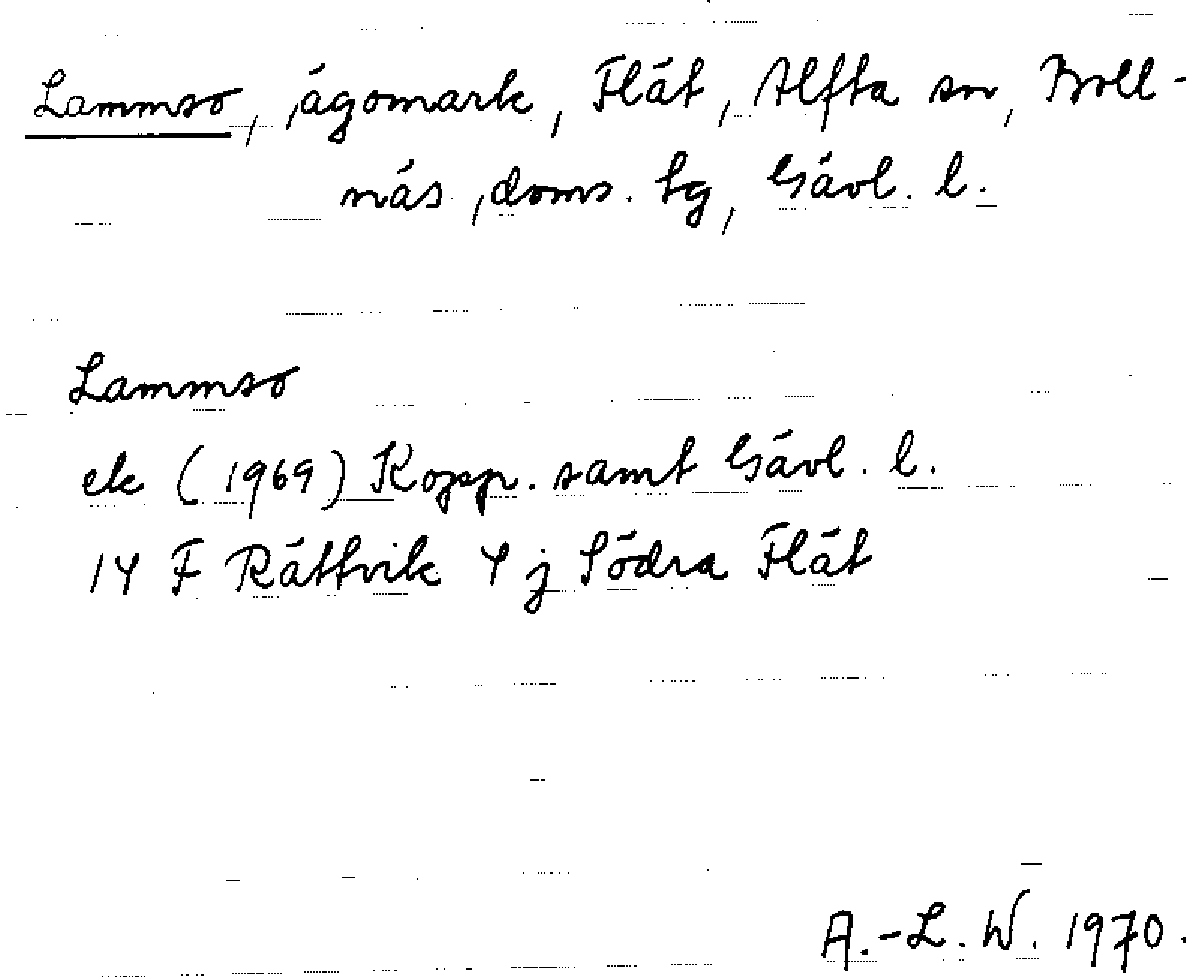 Lammso, ägomark, Flät, Alfta sn, Boll-
näs, doms. tg, Gävl. l.
Lammso
ek (1969) Kopp. samt Gävl. l.
14 F Rättvik 4 j Södra Flät
A.-L. W. 1970.